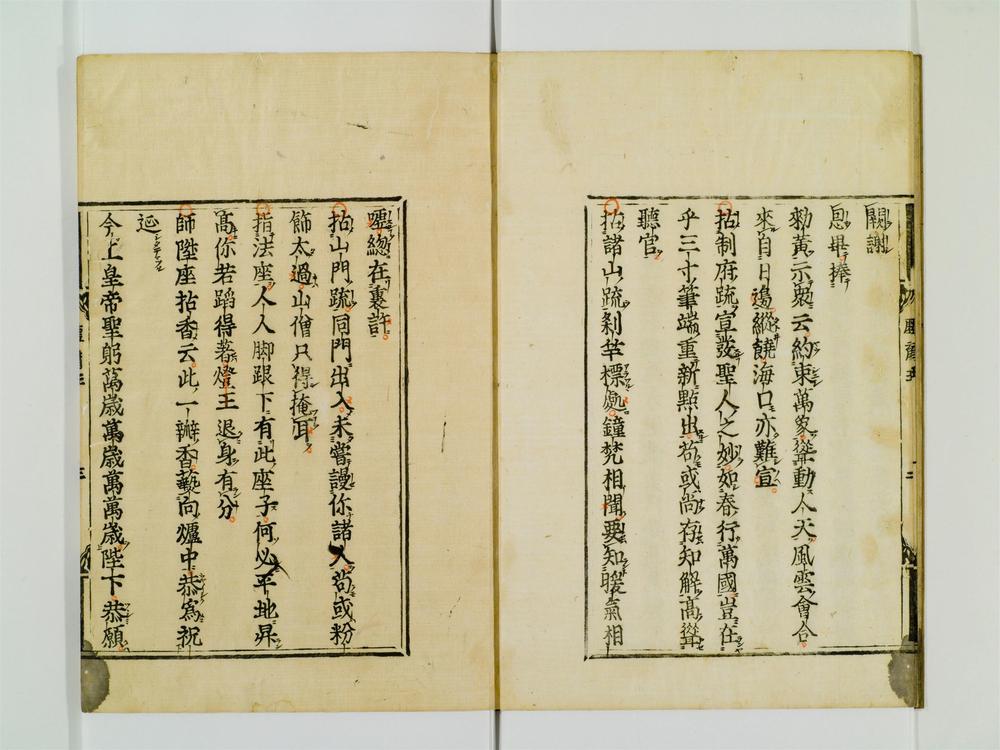 闕謝
恩畢捧
勑黃示衆云約束萬象聳動人天風雲會合
來自日邊縱饒海口亦難宣
拈制府疏宣發聖人之妙如春行萬國豈在
乎三寸筆端重新點出苟或尚存知解高聳
聽官
拈諸山疏剎竿標處鐘梵相聞要知暖氣相
噓總在裏許
拈山門疏同門出入未嘗謾你諸人苟或粉
飾太過山僧只得掩耳
指法座人人脚跟下有此座子何必平地昇
高你若蹈得著燈王退身有分
師陞座拈香云此一瓣香爇向爐中恭爲祝
延
今上皇帝聖躬萬歲萬歲萬萬歲陛下恭願